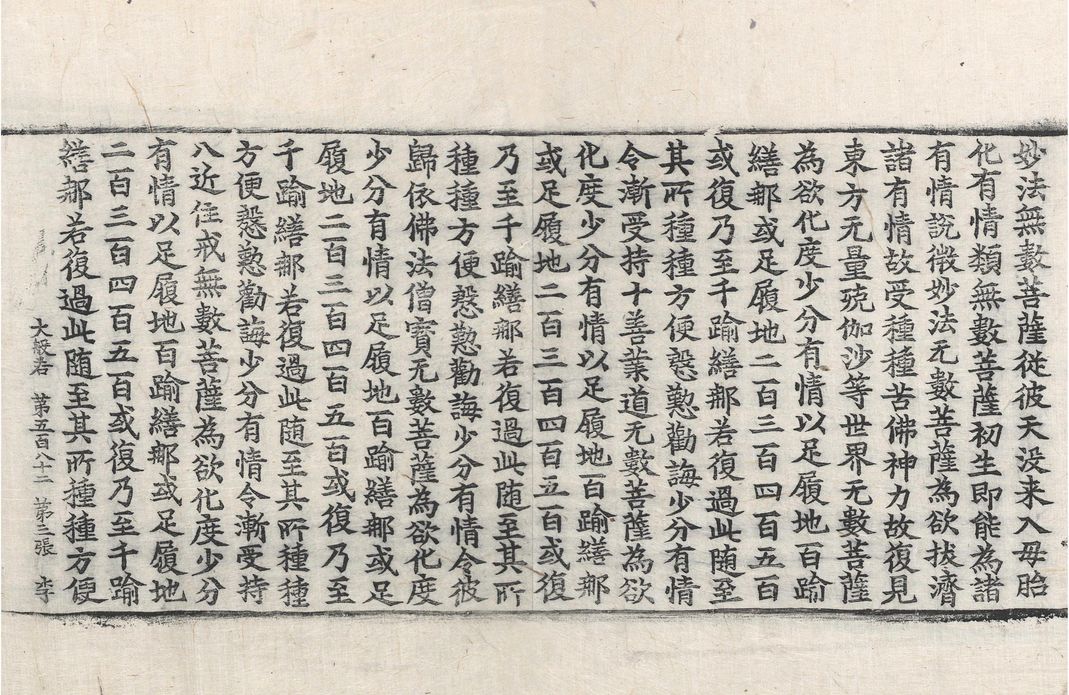 妙法無數菩薩從彼天没来入母胎
化有情類無數菩薩初生即能為諸
有情說微妙法无數菩薩為欲拔濟
諸有情故受種種苦佛神力故復見
東方无量殑伽沙等世界无數菩薩
為欲化度少分有情以足履地百踰
繕那或足履地二百三百四百五百
或復乃至千踰繕那若復過此随至
其所種種方便慇懃勸誨少分有情
令漸受持十善業道无數菩薩為欲
化度少分有情以足履地百踰繕那
或足履地二百三百四百五百或復
乃至千踰繕那若復過此随至其所
種種方便慇懃勸誨少分有情令彼
歸依佛法僧寶无數菩薩為欲化度
少分有情以足履地百踰繕那或足
履地二百三百四百五百或復乃至
千踰繕那若復過此随至其所種種
方便慇懃勸誨少分有情令漸受持
八近住戒無數菩薩為欲化度少分
有情以足履地百踰繕那或足履地
二百三百四百五百或復乃至千踰
繕那若復過此随至其所種種方便
大般若 第五百八十二 第三張 李